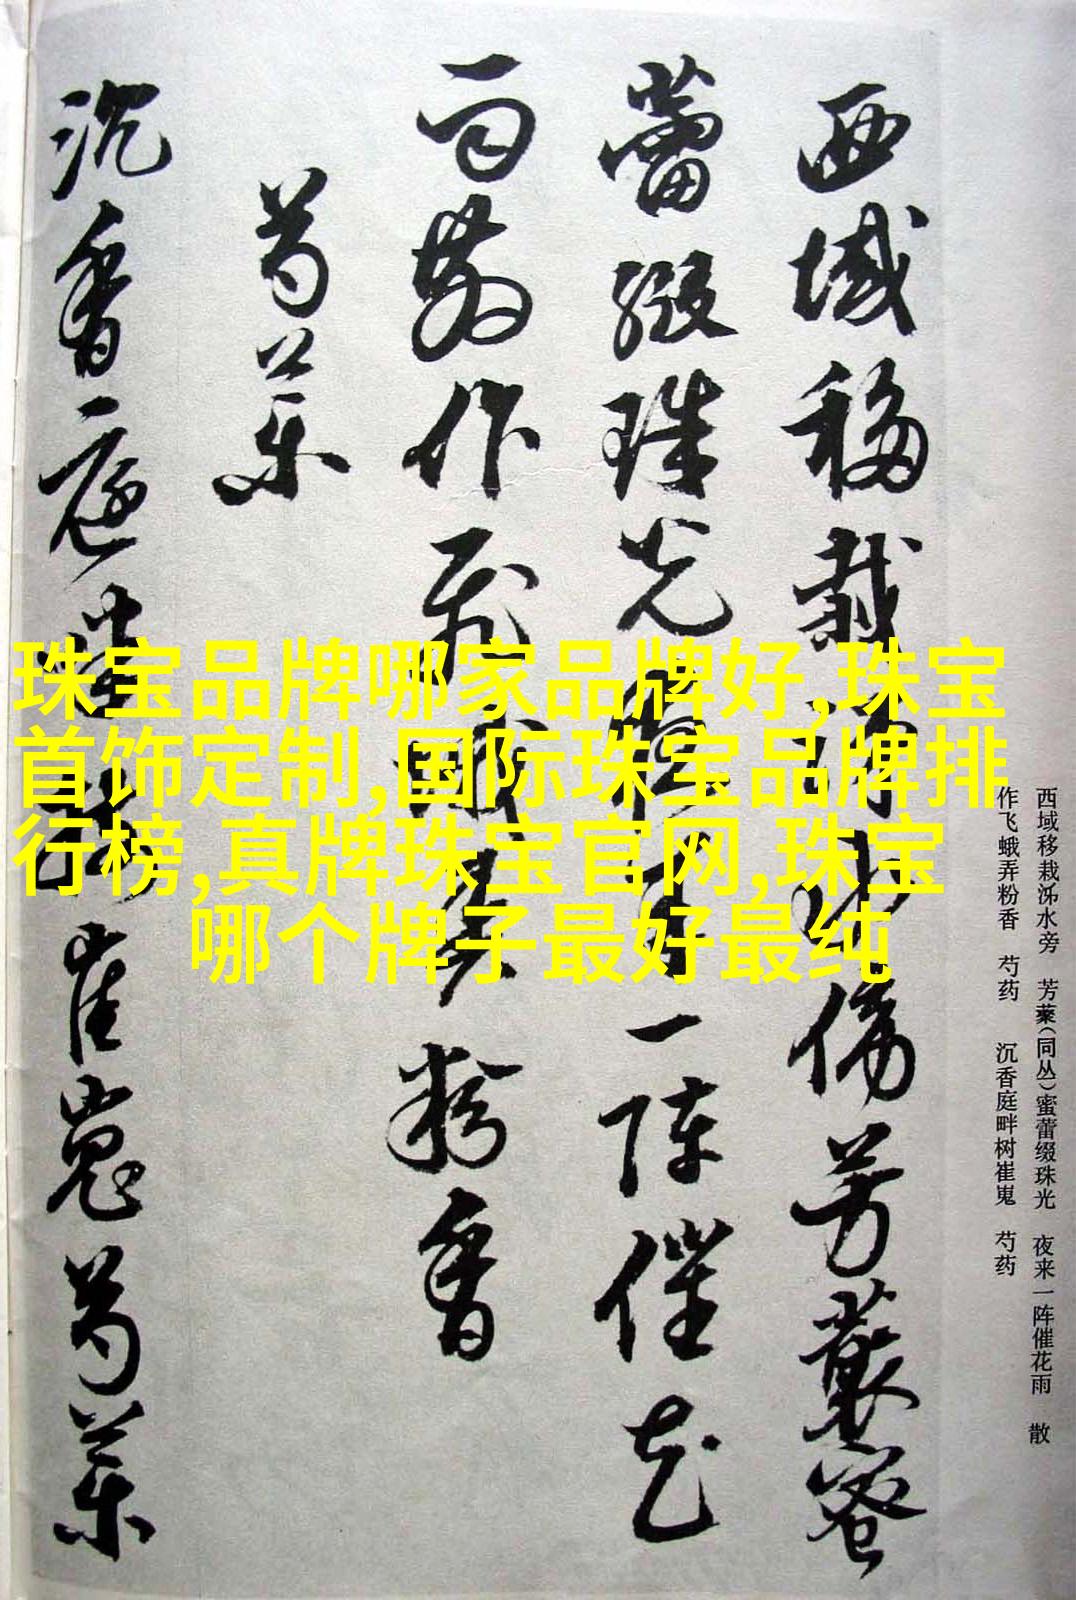 西域移栽泲水旁　芳藂（同丛）蜜蕾缀珠光　夜来一阵催花雨　散
作飞蛾弄粉香　芍药　沉香庭畔树崔嵬　芍药
西域移栽泲水傍芳藂蜜
蕾缀珠光夜来一阵催花
雨散作飞蛾弄粉香
芍药
沉香庭畔树崔嵬芍药
珠宝品牌哪家品牌好,珠宝
首饰定制,国际珠宝品牌排
行榜,真牌珠宝官网,珠宝
哪个牌子最好最纯